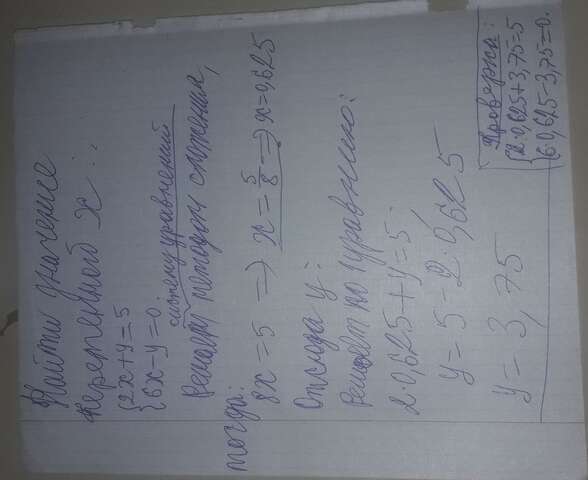 Найти значение
переменного x:
{2x+y=5
{6x-y=0.
систему уравнений
Решаем методом сложения,
тогда:
8x=5 => x=5/8 => x=0,625
Отсюда y:
Решаем по 1 уравнению:
2·0,625+y=5
y=5-2·0,625
y=3,75
Проверка:
{2·0,625+3,75=5
{6·0,625-3,75=0.